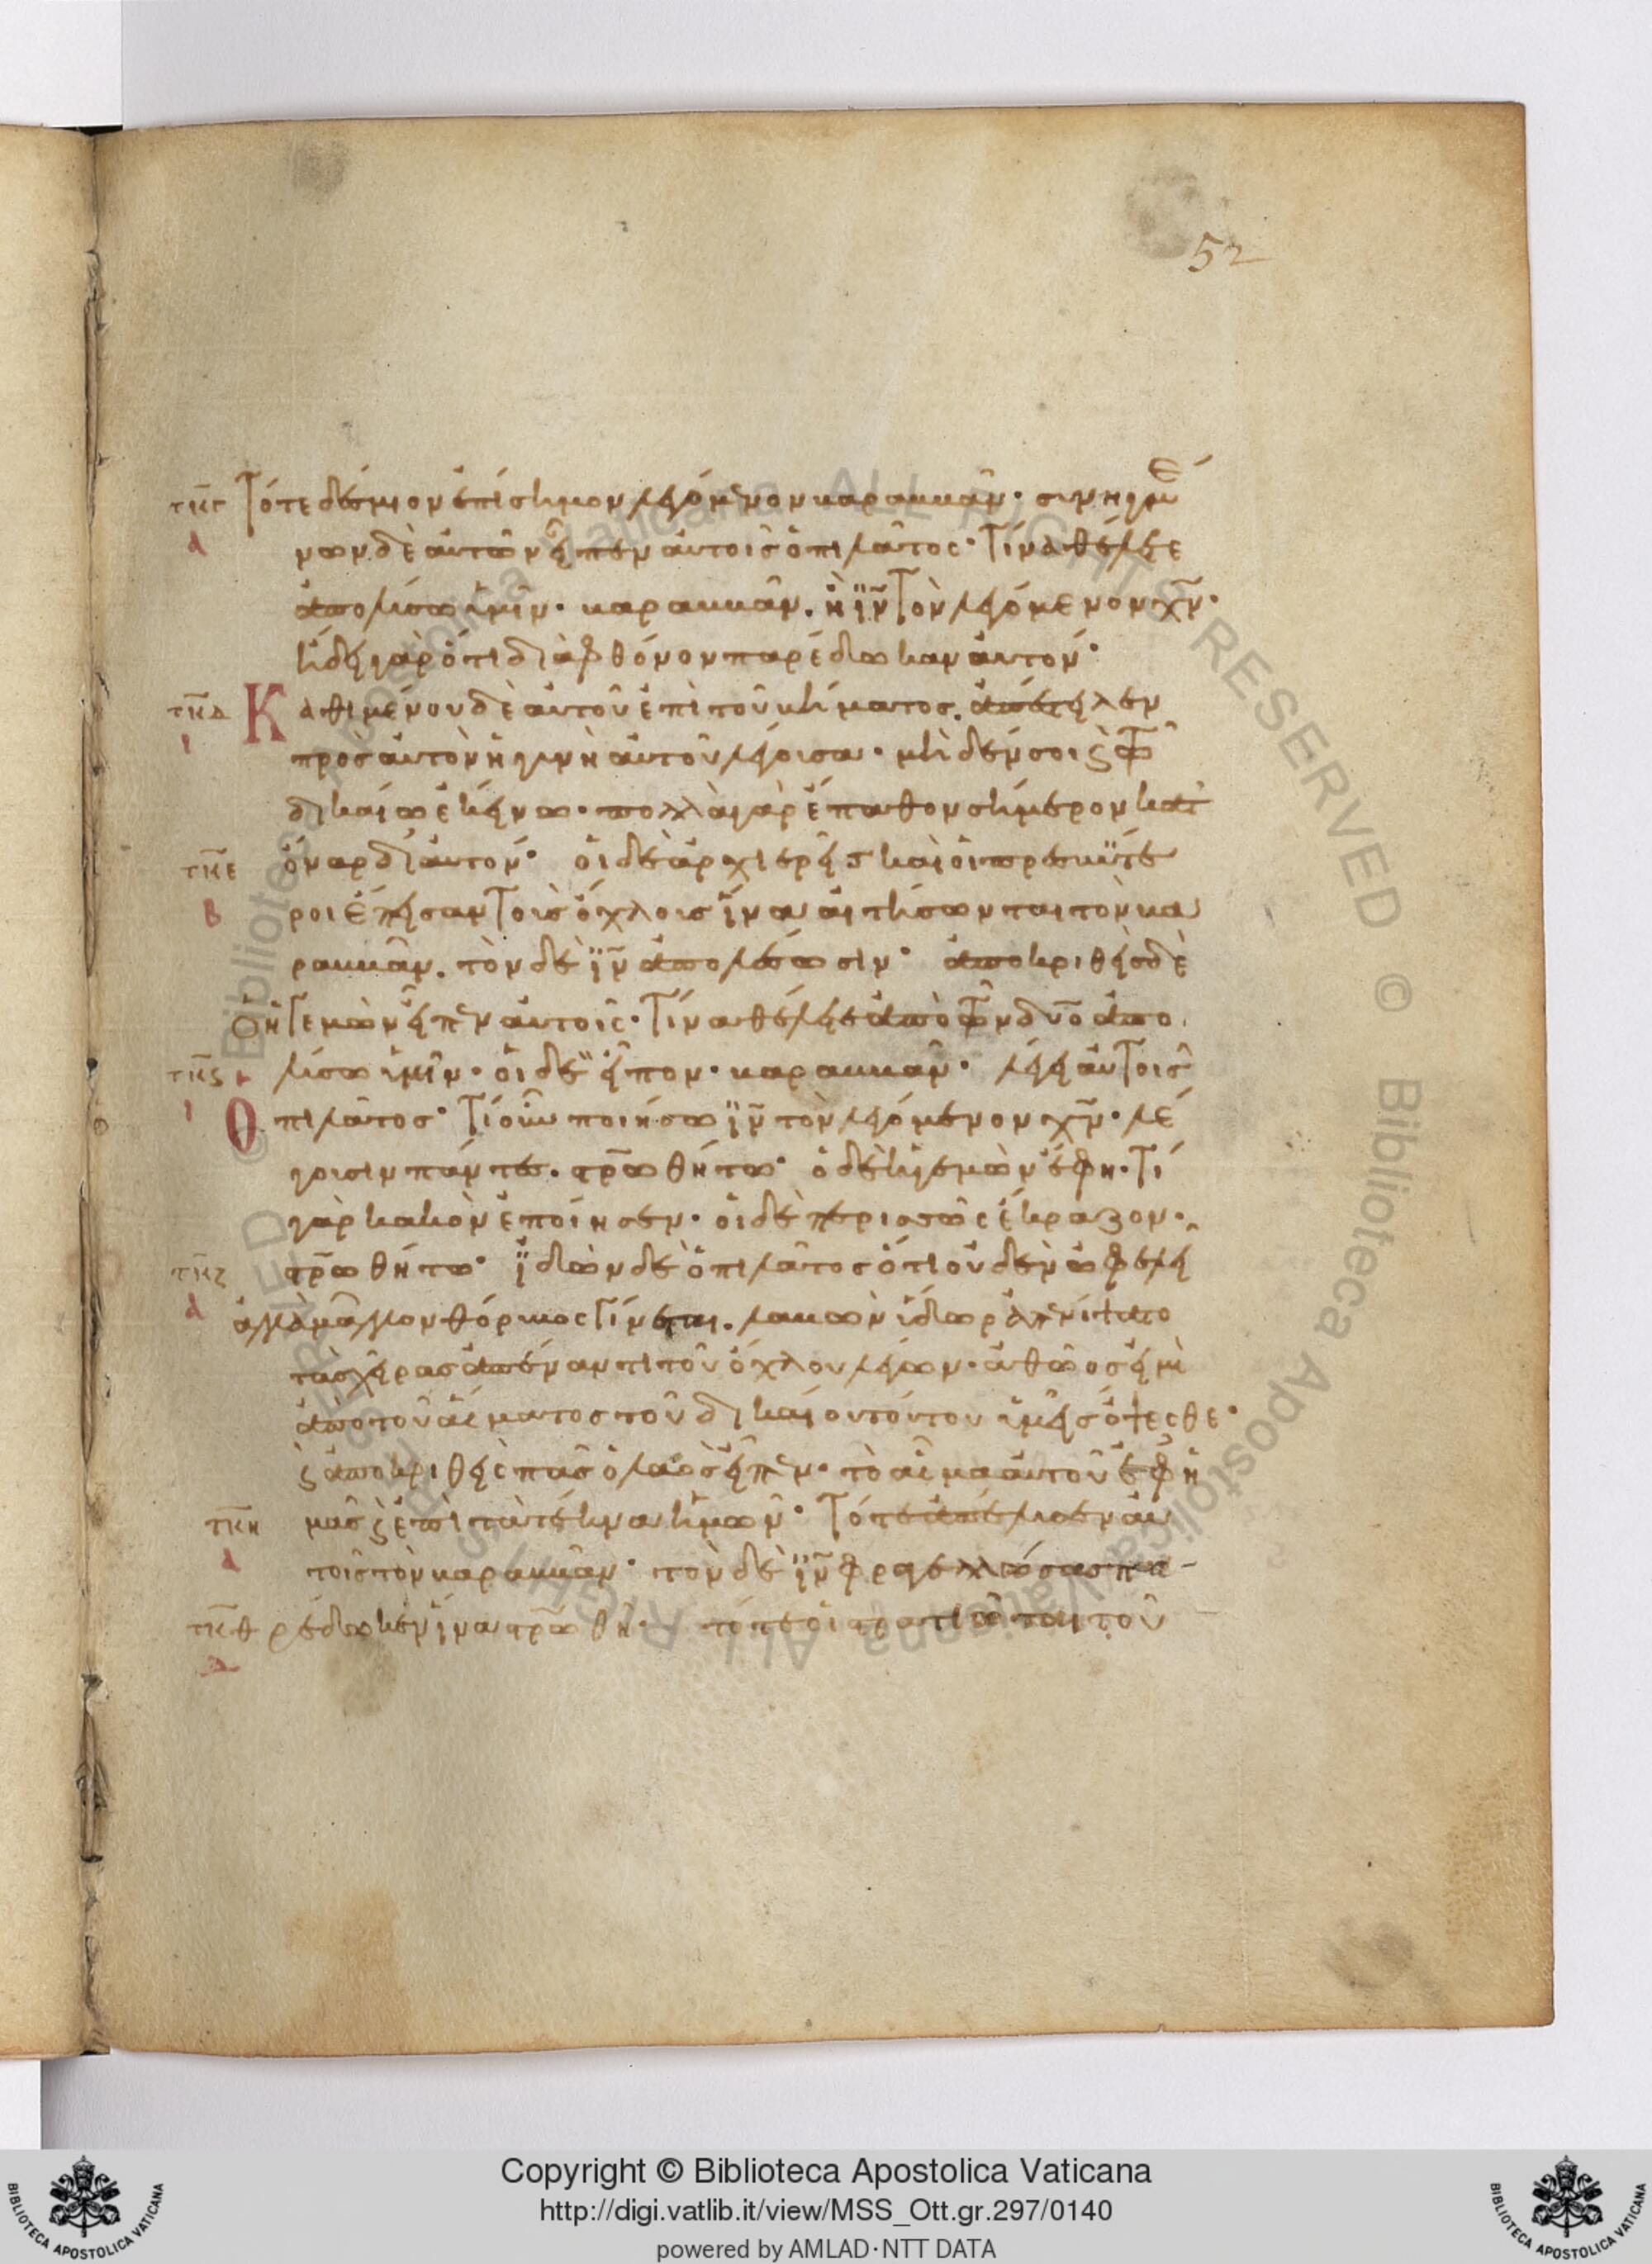 52
τκγ Τότε δέσμιον ἐπίσημον λεγόμενον βαραββᾶν· συνηγμέ
α νων δὲ αὐτῶν εἶπεν αὐτοῖς ὁ πιλᾶτος· Τίνα θέλετε
ἀπολύσω ὑμῖν· βαραββᾶν. ἢ ϊν̅ Τὸν λεγόμενον χν̅·
ἤδει γὰρ ὅτι διὰ φθόνον παρέδωκαν αὐτόν·
τκδ Καθημένου δὲ αὐτοῦ ἐπὶ τοῦ βήματος. ἀπέστειλεν
ι πρὸς αὐτὸν ἡ γυνὴ αὐτοῦ λέγουσα· μηδέν σοι ϗ τῶ
δικαίω ἐκείνω· πολλὰ γὰρ ἔπαθον σήμερον κατ
τκε ὄναρ δι αὐτόν· οἱ δὲ ἀρχιερεῖς καὶ οἱ πρεσβύτε
β ροι ἔπεισαν Τοὺς ὄχλους ἵνα αἰτήσωνται τὸν βα
ραββᾶν. τὸν δὲ ϊν̅ ἀπολέσωσιν· ἀποκριθεὶς δὲ
ὁ ἡγεμὼν εἶπεν αὐτοῖς· Τίνα θέλετε ἀπὸ τῶν δύο ἀπο
τκς λύσω ὑμῖν· οἱ δὲ εἶπον· βαραββᾶν· λέγει αὐτοῖς
ι Ο πιλᾶτος· Τί οὖν ποιήσω ϊν̅ τὸν λεγόμενον χν̅· λέ
γουσιν πάντες. στρ̅ωθήτω· ὁ δὲ ἡγεμὼν ἔφη· Τί
γὰρ κακὸν ἐποίησεν· οἱ δὲ περισσῶς ἔκραζον·
τκζ στρ̅ωθήτω· ἰδὼν δὲ ὁ πιλᾶτος ὅτι οὐδὲν ὠφελεῖ
α ἀλλὰ μᾶλλον θόρυβος Γίνεται. λαβὼν ὕδωρ ἀπενίψατο
τὰς χεῖρας ἀπέναντι τοῦ ὄχλου λέγων· ἀθῶος εἰμὶ
ἀπὸ τοῦ αἵματος τοῦ δικαίου τούτου ὑμεῖς ὄψεσθε·
ϗ ἀποκριθεὶς πᾶς ὁ λαὸς εἶπεν· τὸ αἷμα αὐτοῦ ἐφ ἡ
τκη μᾶς ϗ ἐπὶ τὰ τέκνα ἡμῶν· Τότε ἀπέλυσεν αὐ
α τοῖς τὸν βαραββᾶν· τὸν δὲ ϊν̅ φραγελλώσας πα-
τκθ ρέδωκεν ἵνα στρ̅ωθῆ· τότε οἱ στρατιῶται τοῦ
δ
Copyright © Biblioteca Apostolica Vaticana
http://digi.vatlib.it/view/MSS_Ott.gr.297/0140
powered by AMLAD·NTT DATA